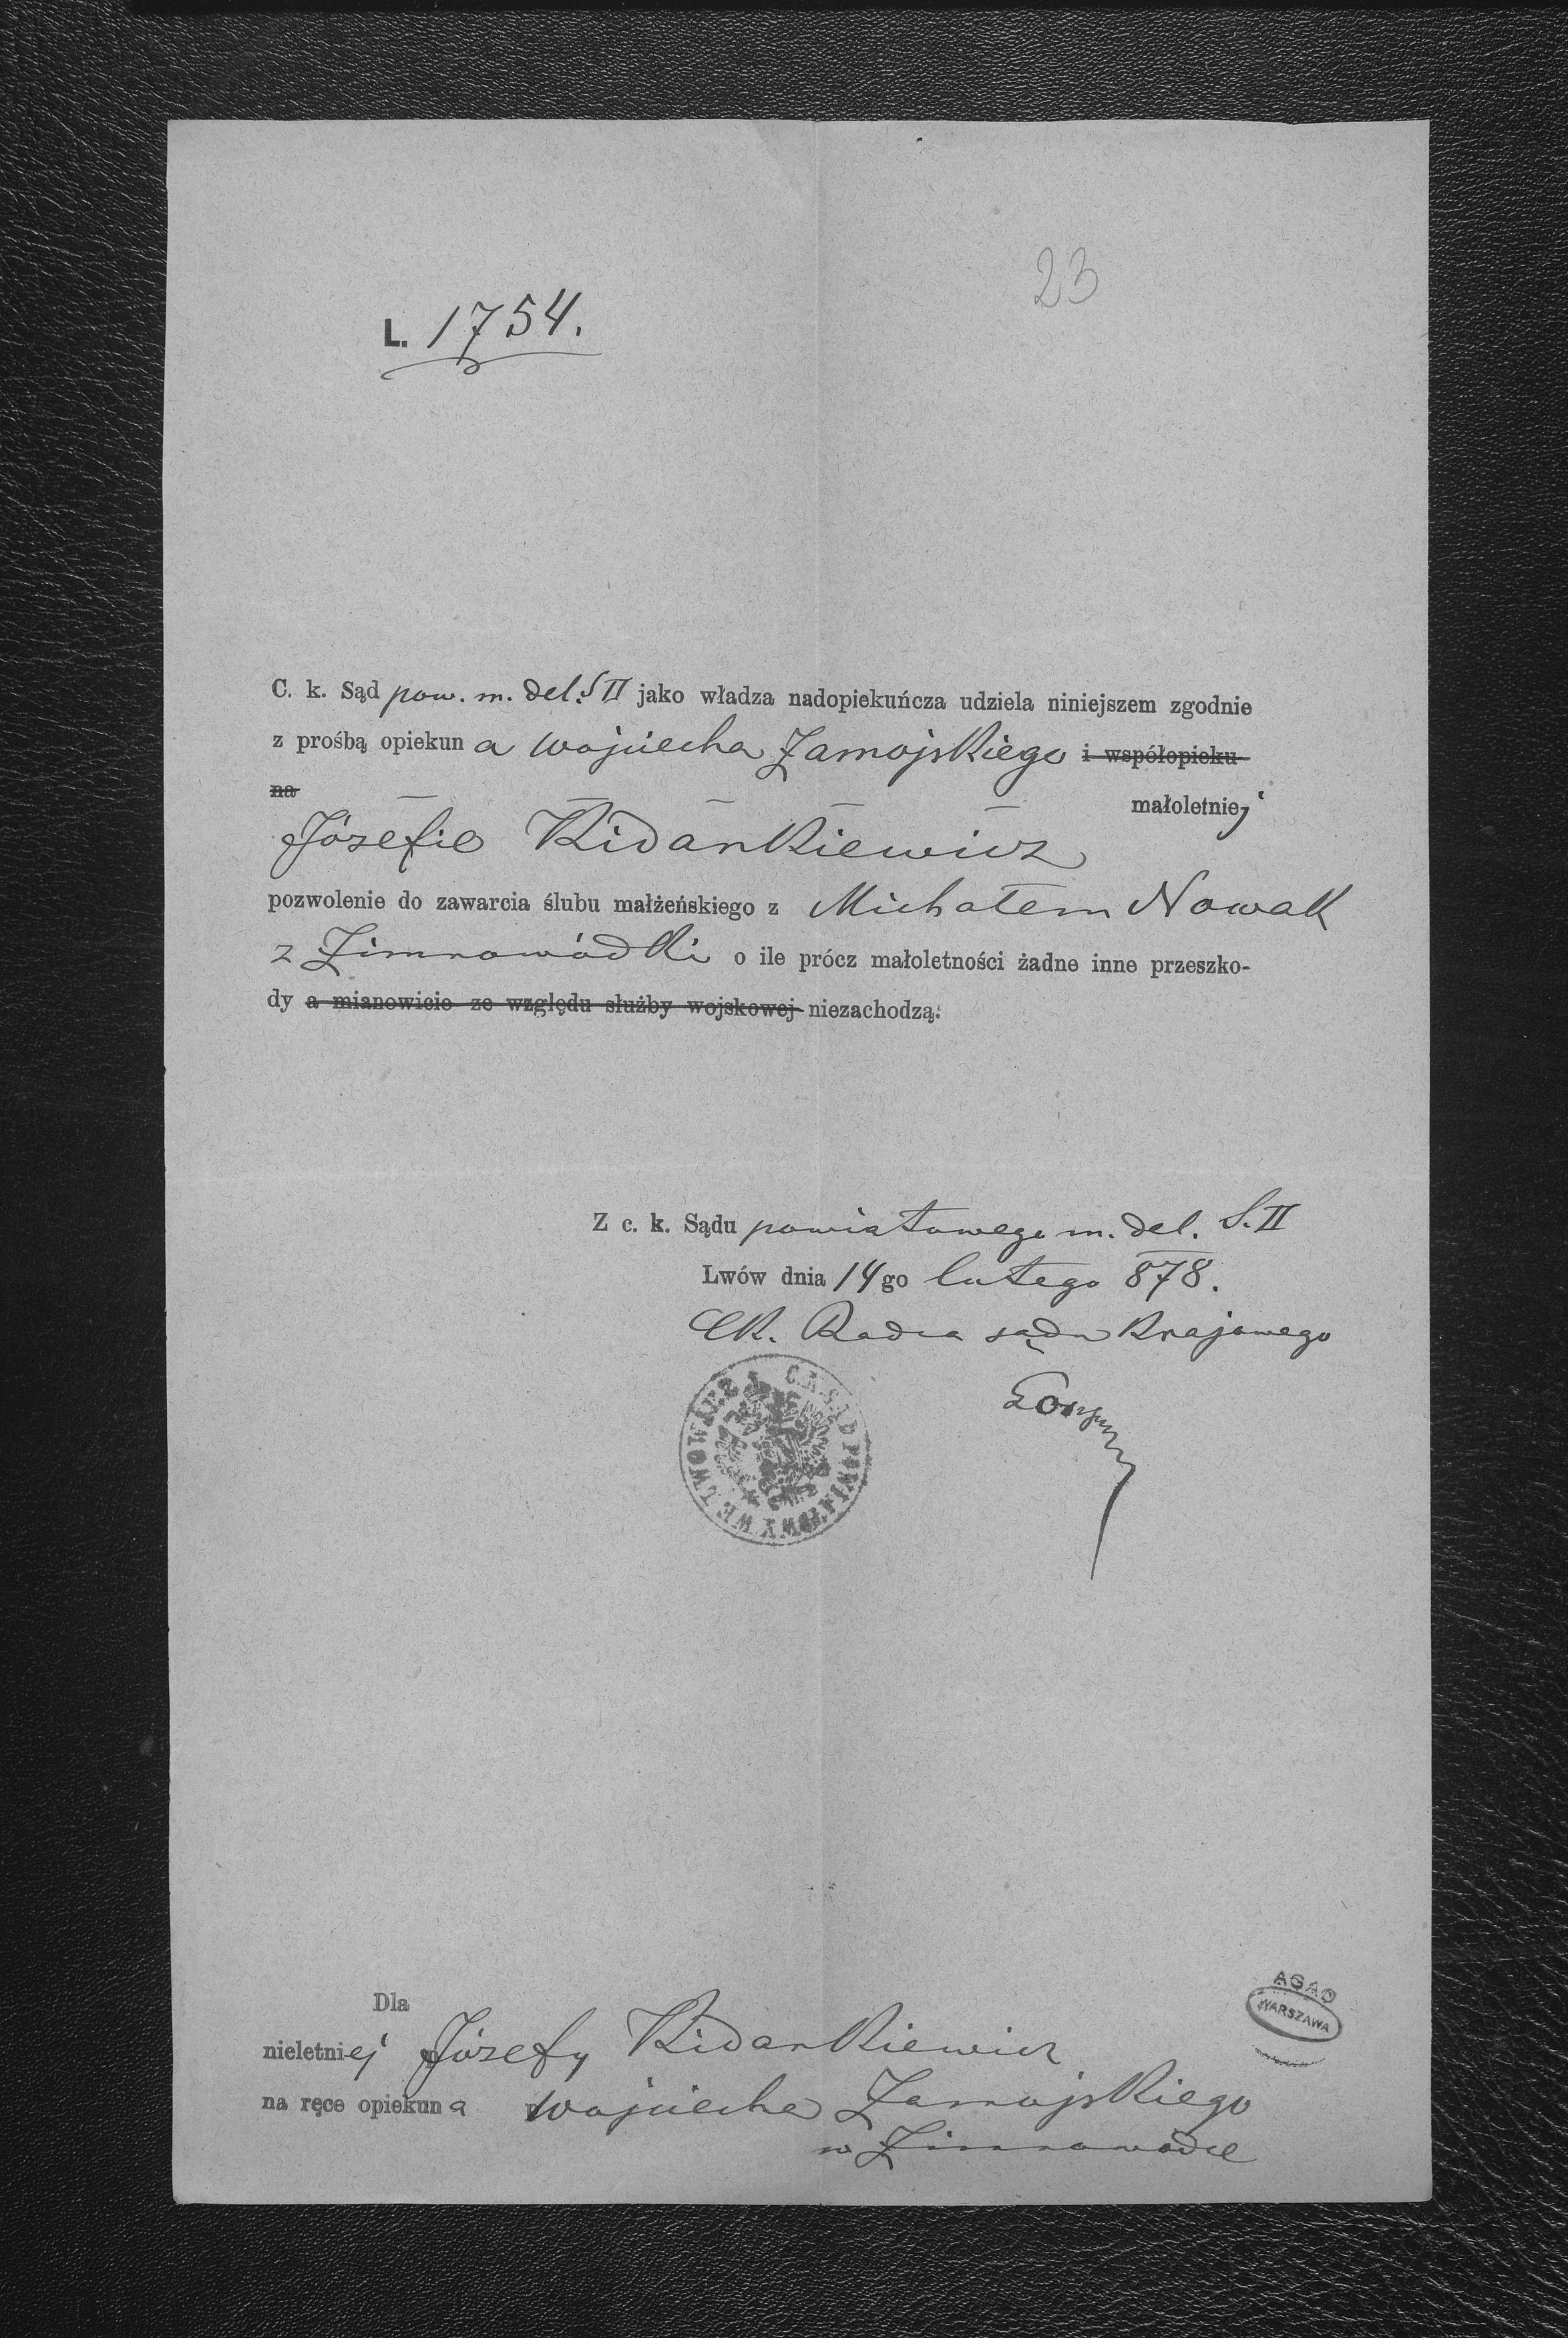 23
L. 1754.
C. k. Sąd pow. m. del. S II jako władza nadopiekuńcza udziela niniejszem zgodnie
z prośbą opiekuna Wojciecha Zamojskiego i współopieku
na małoletniej
Józefie Kidankiewicz
pozwolenie do zawarcia ślubu małżeńskiego z Michałem Nowak
z Zimnowódki o ile prócz małoletności żadne inne przeszko-
dy a mianowicie ze względu służby wojskowej niezachodzą.
Z c. k. Sądu powiatowego m. del. S. II
Lwów dnia 14go lutego 878.
CK. Radca sądu krajowego
C. K. SĄD POWIATOWY WE LWOWIE
Dla
nieletniej Józefy Kidankiewicz
na ręce opiekuna Wojciecha Zamojskiego
w Zimnowódce
AGAD
WARSZAWA